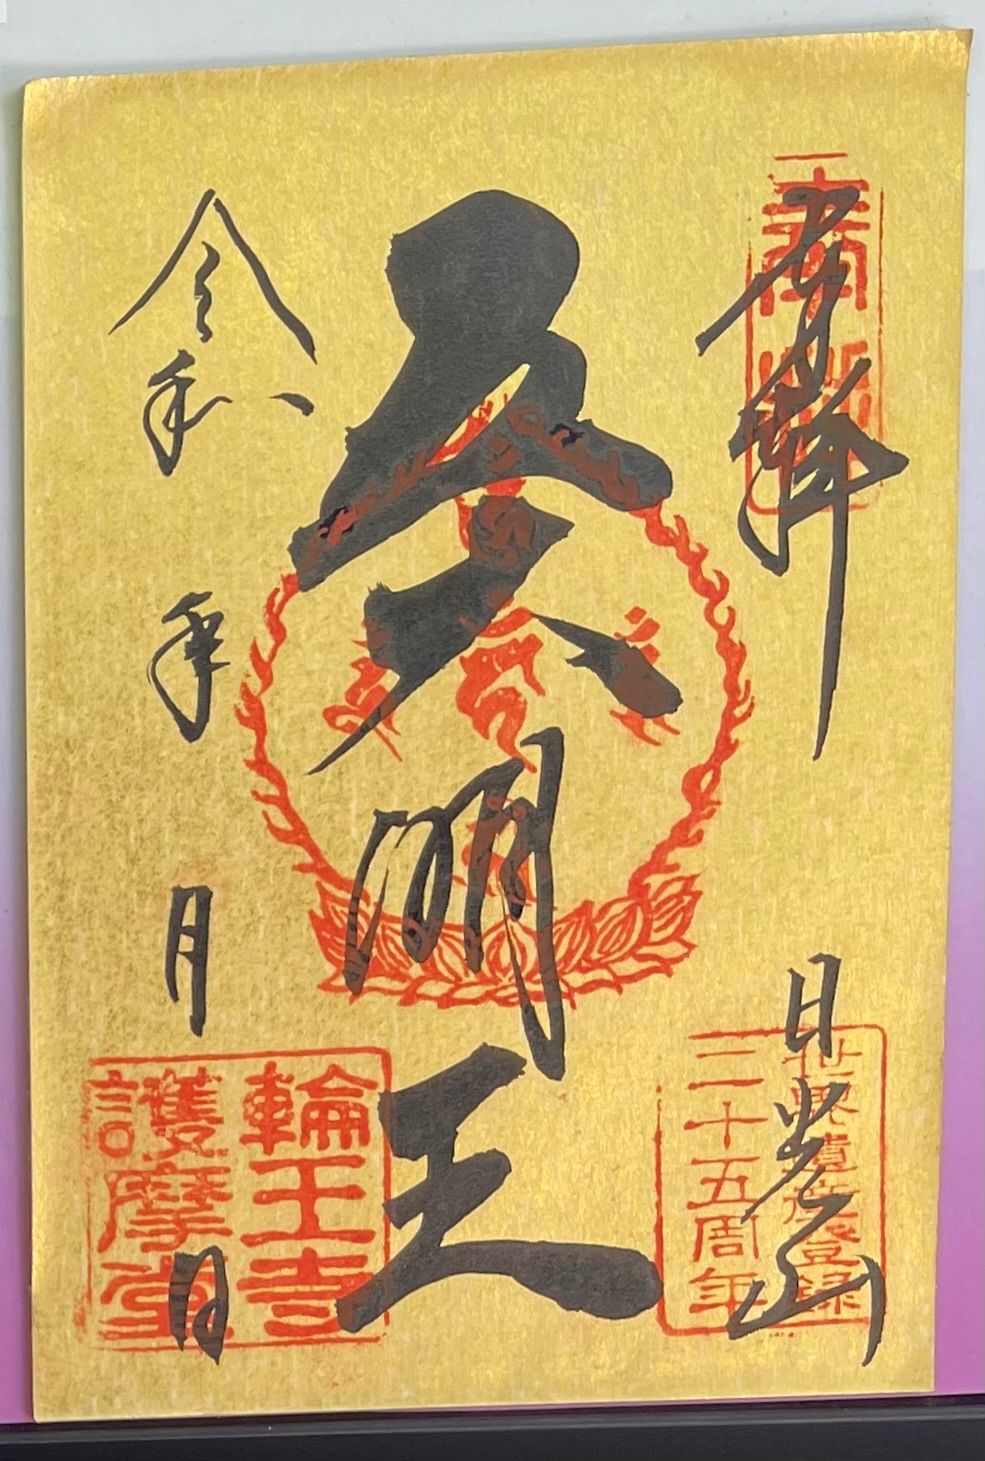 奉拝
日光山
世界遺産登録
二十五周年
五大明王
輪王寺
護摩堂
令和 年 月 日